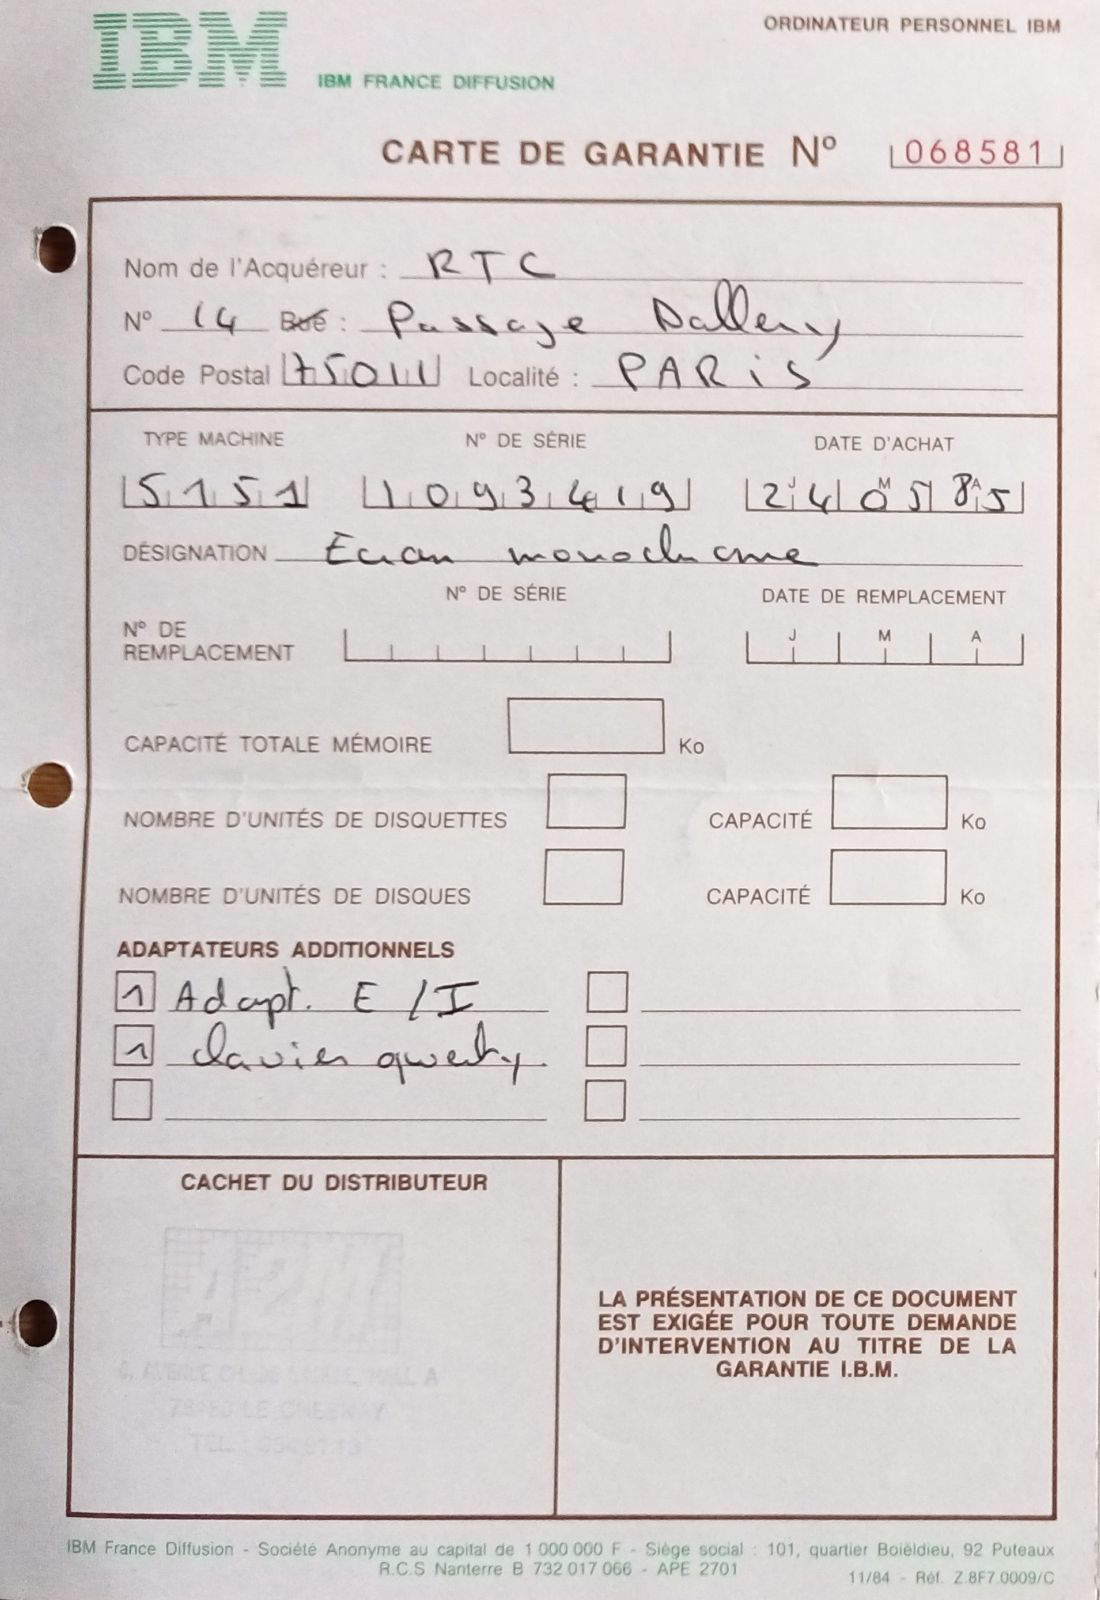 IBM
ORDINATEUR PERSONNEL IBM
IBM FRANCE DIFFUSION
CARTE DE GARANTIE N° 068581
Nom de l'Acquéreur : RTC
N° 14 Rue : Passage Dallery
Code Postal 75011 Localité : PARIS
TYPE MACHINE N° DE SÉRIE DATE D'ACHAT
5151 1093419 J M A 24 05 85
DÉSIGNATION Ecran monochrome
N° DE SÉRIE DATE DE REMPLACEMENT
N° DE
REMPLACEMENT J M A
CAPACITÉ TOTALE MÉMOIRE Ko
NOMBRE D'UNITÉS DE DISQUETTES CAPACITÉ Ko
NOMBRE D'UNITÉS DE DISQUES CAPACITÉ Ko
ADAPTATEURS ADDITIONNELS
1 Adapt. E/I
1 clavier qwerty.
CACHET DU DISTRIBUTEUR
AVENUE HALL A
LE CHESNAY
TEL :
LA PRÉSENTATION DE CE DOCUMENT
EST EXIGÉE POUR TOUTE DEMANDE
D'INTERVENTION AU TITRE DE LA
GARANTIE I.B.M.
IBM France Diffusion - Société Anonyme au capital de 1 000 000 F - Siège social : 101, quartier Boiëldieu, 92 Puteaux
R.C.S Nanterre B 732 017 066 - APE 2701
11/84 - Réf. Z.8F7.0009/C